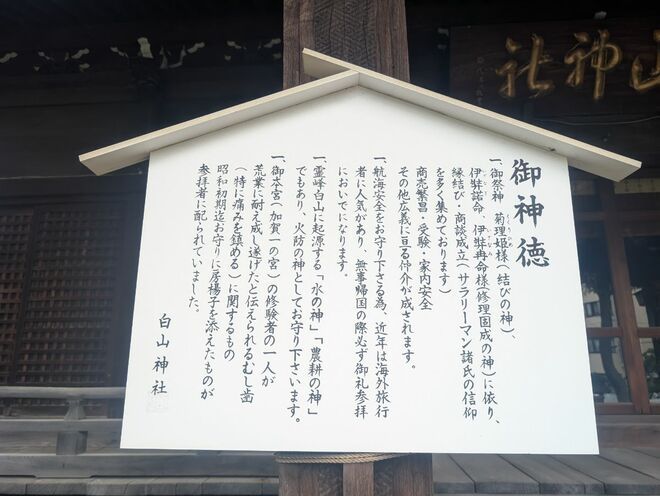 山神社
御神徳
一、御祭神 菊理姫様(結びの神)、
伊弉諾命 伊弉冉命様(修理国成の神)に依り、
縁結び・商談成立(サラリーマン諸氏の信仰
を多く集めております)
商売繁昌・受験・家内安全
その他広義に亘る仲介が成されます。
一、航海安全をお守り下さる為、近年は海外旅行
者に人気があり、無事帰国の際必ず御礼参拝
においでになります。
一、霊峰白山に起源する「水の神」「農耕の神」
でもあり、火防の神としてお守り下さいます。
一、御本宮(加賀一の宮)の修験者の一人が
荒業に耐え成し遂げたと伝えられるむし歯
(特に痛みを鎮める)に関するもの
昭和初期迄お守りに房楊子を添えたものが
参拝者に配られていました。
白山神社